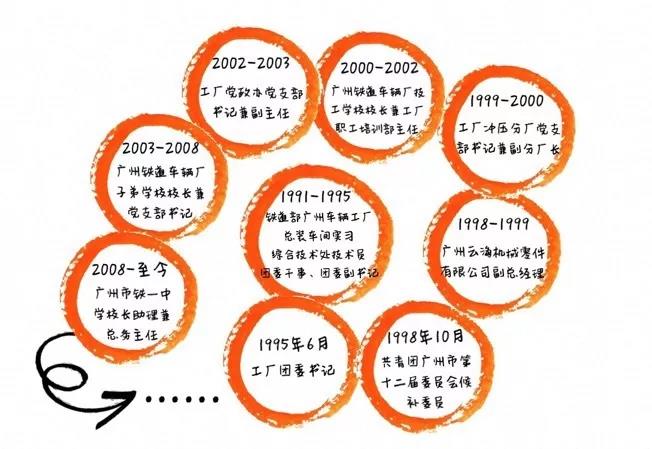 1991-1995
铁道部广州车辆工厂
总装车间实习
综合技术处技术员
团委干事、团委副书记
1995年6月
工厂团委书记
1998年10月
共青团广州市第
十二届委员会候
补委员
1998-1999
广州云海机械零件
有限公司副总经理
1999-2000
工厂冲压分厂党支
部书记兼副分厂长
2000-2002
广州铁道车辆厂技
工学校校长兼工厂
职工培训部主任
2002-2003
工厂党政办党支部
书记兼副主任
2003-2008
广州铁道车辆厂
子弟学校校长兼
党支部书记
2008-至今
广州市铁一中
学校长助理兼
总务主任
......